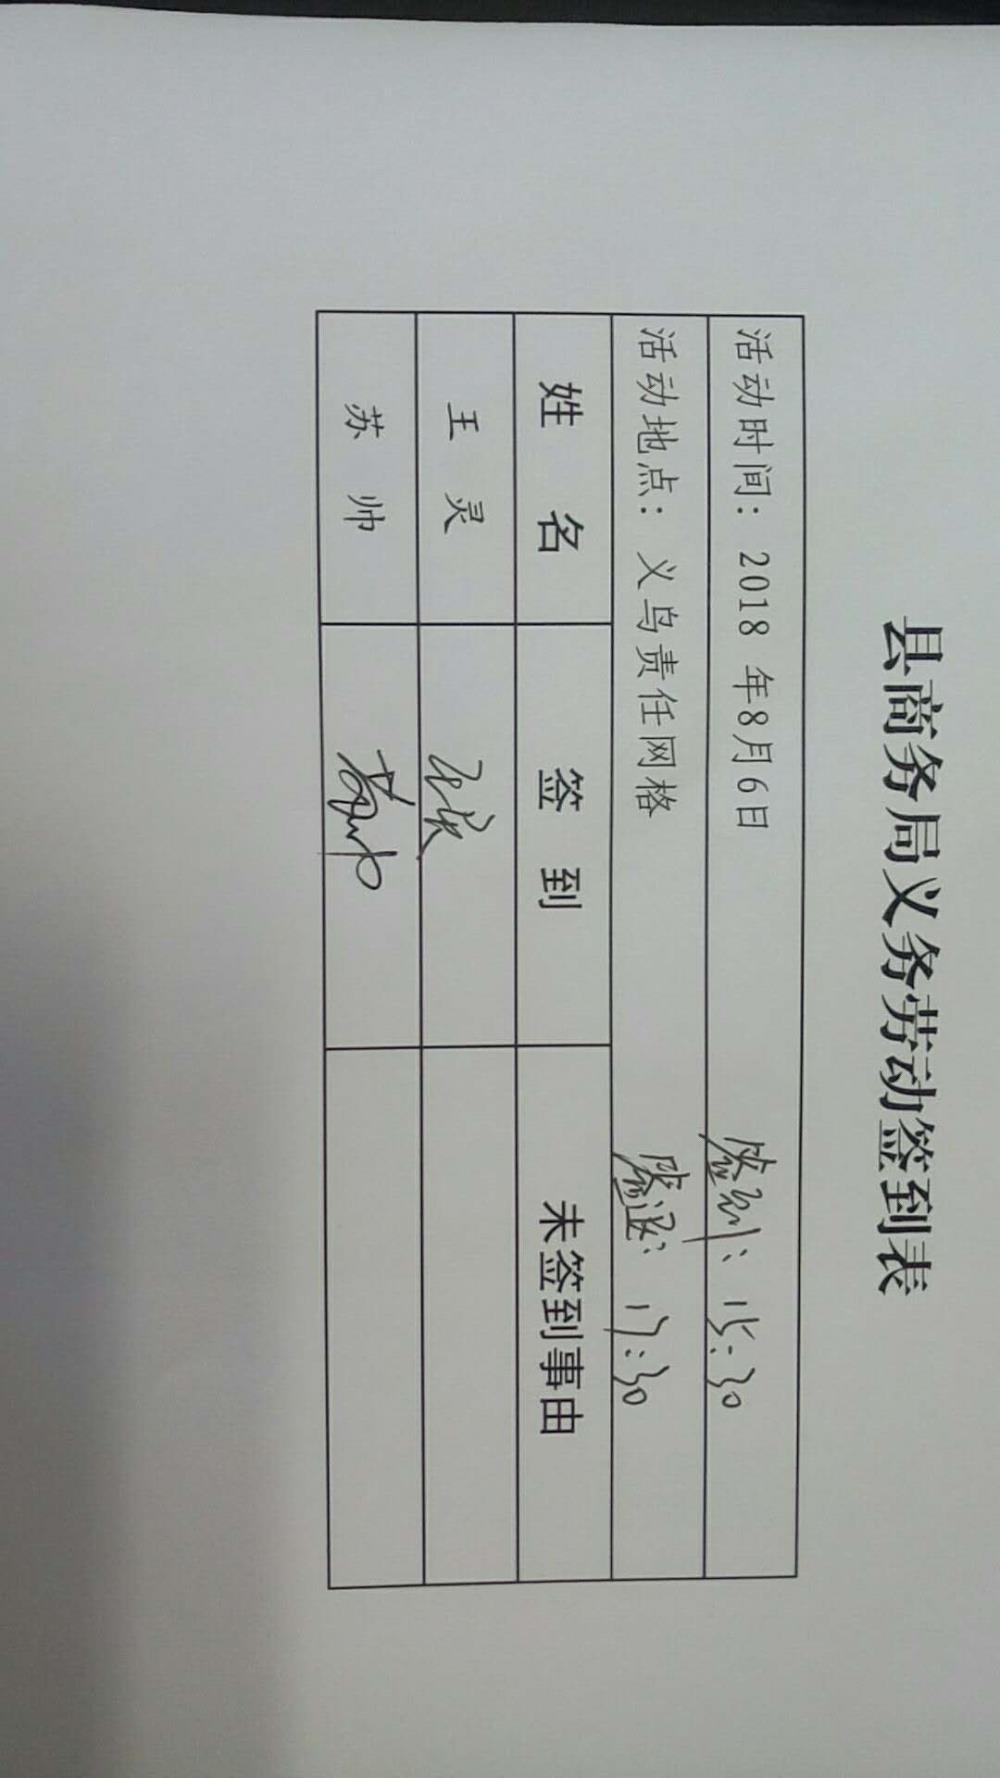 县商务局义务劳动签到表
活动时间：2018 年8月6日 签到：15:30
活动地点：义乌责任网格 签退：17:30
姓 名 签 到 未签到事由
王 灵 王灵
苏 帅 苏帅